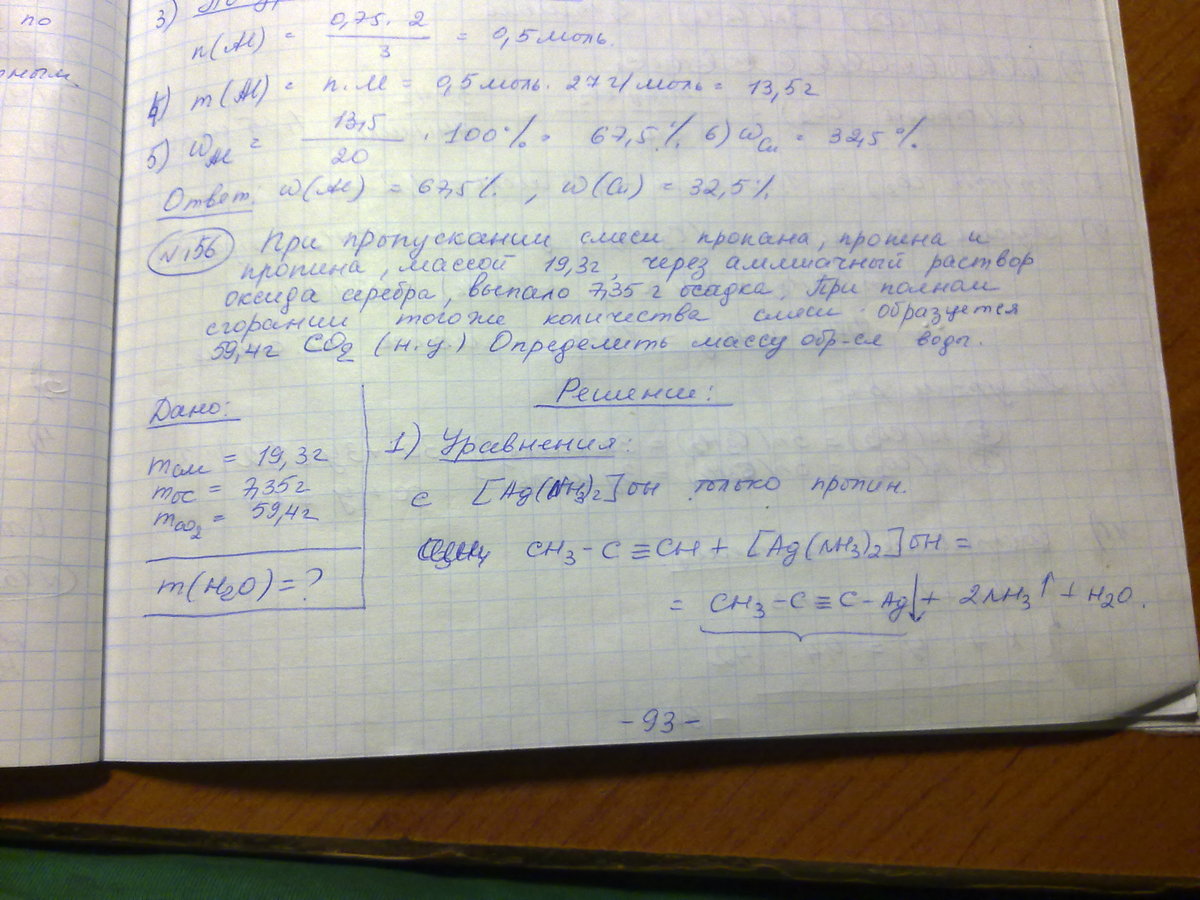 по
рным
3)
n(Al) = 0,75 · 2 / 3 = 0,5 моль.
4) m(Al) = n·M = 0,5 моль · 27 г/моль = 13,5 г
5) ωAl = 13,5 / 20 · 100% = 67,5 % 6) ωCu = 32,5 %.
Ответ: ω(Al) = 67,5 %. , ω(Cu) = 32,5 %.
№156 При пропускании смеси пропана, пропена и
пропина, массой 19,3г, через аммиачный раствор
оксида серебра, выпало 7,35 г осадка. При полном
сгорании того же количества смеси образуется
59,4г CO2 (н.у.) Определить массу обр-ся воды.
Дано:
Решение:
mсм = 19,3г
mос = 7,35г
mCO2 = 59,4г
m(H2O) = ?
1) Уравнения:
с [Ag(NH3)2]OH только пропин.
CH3-C≡CH + [Ag(NH3)2]OH =
= CH3-C≡C-Ag↓ + 2NH3↑ + H2O.
-93-